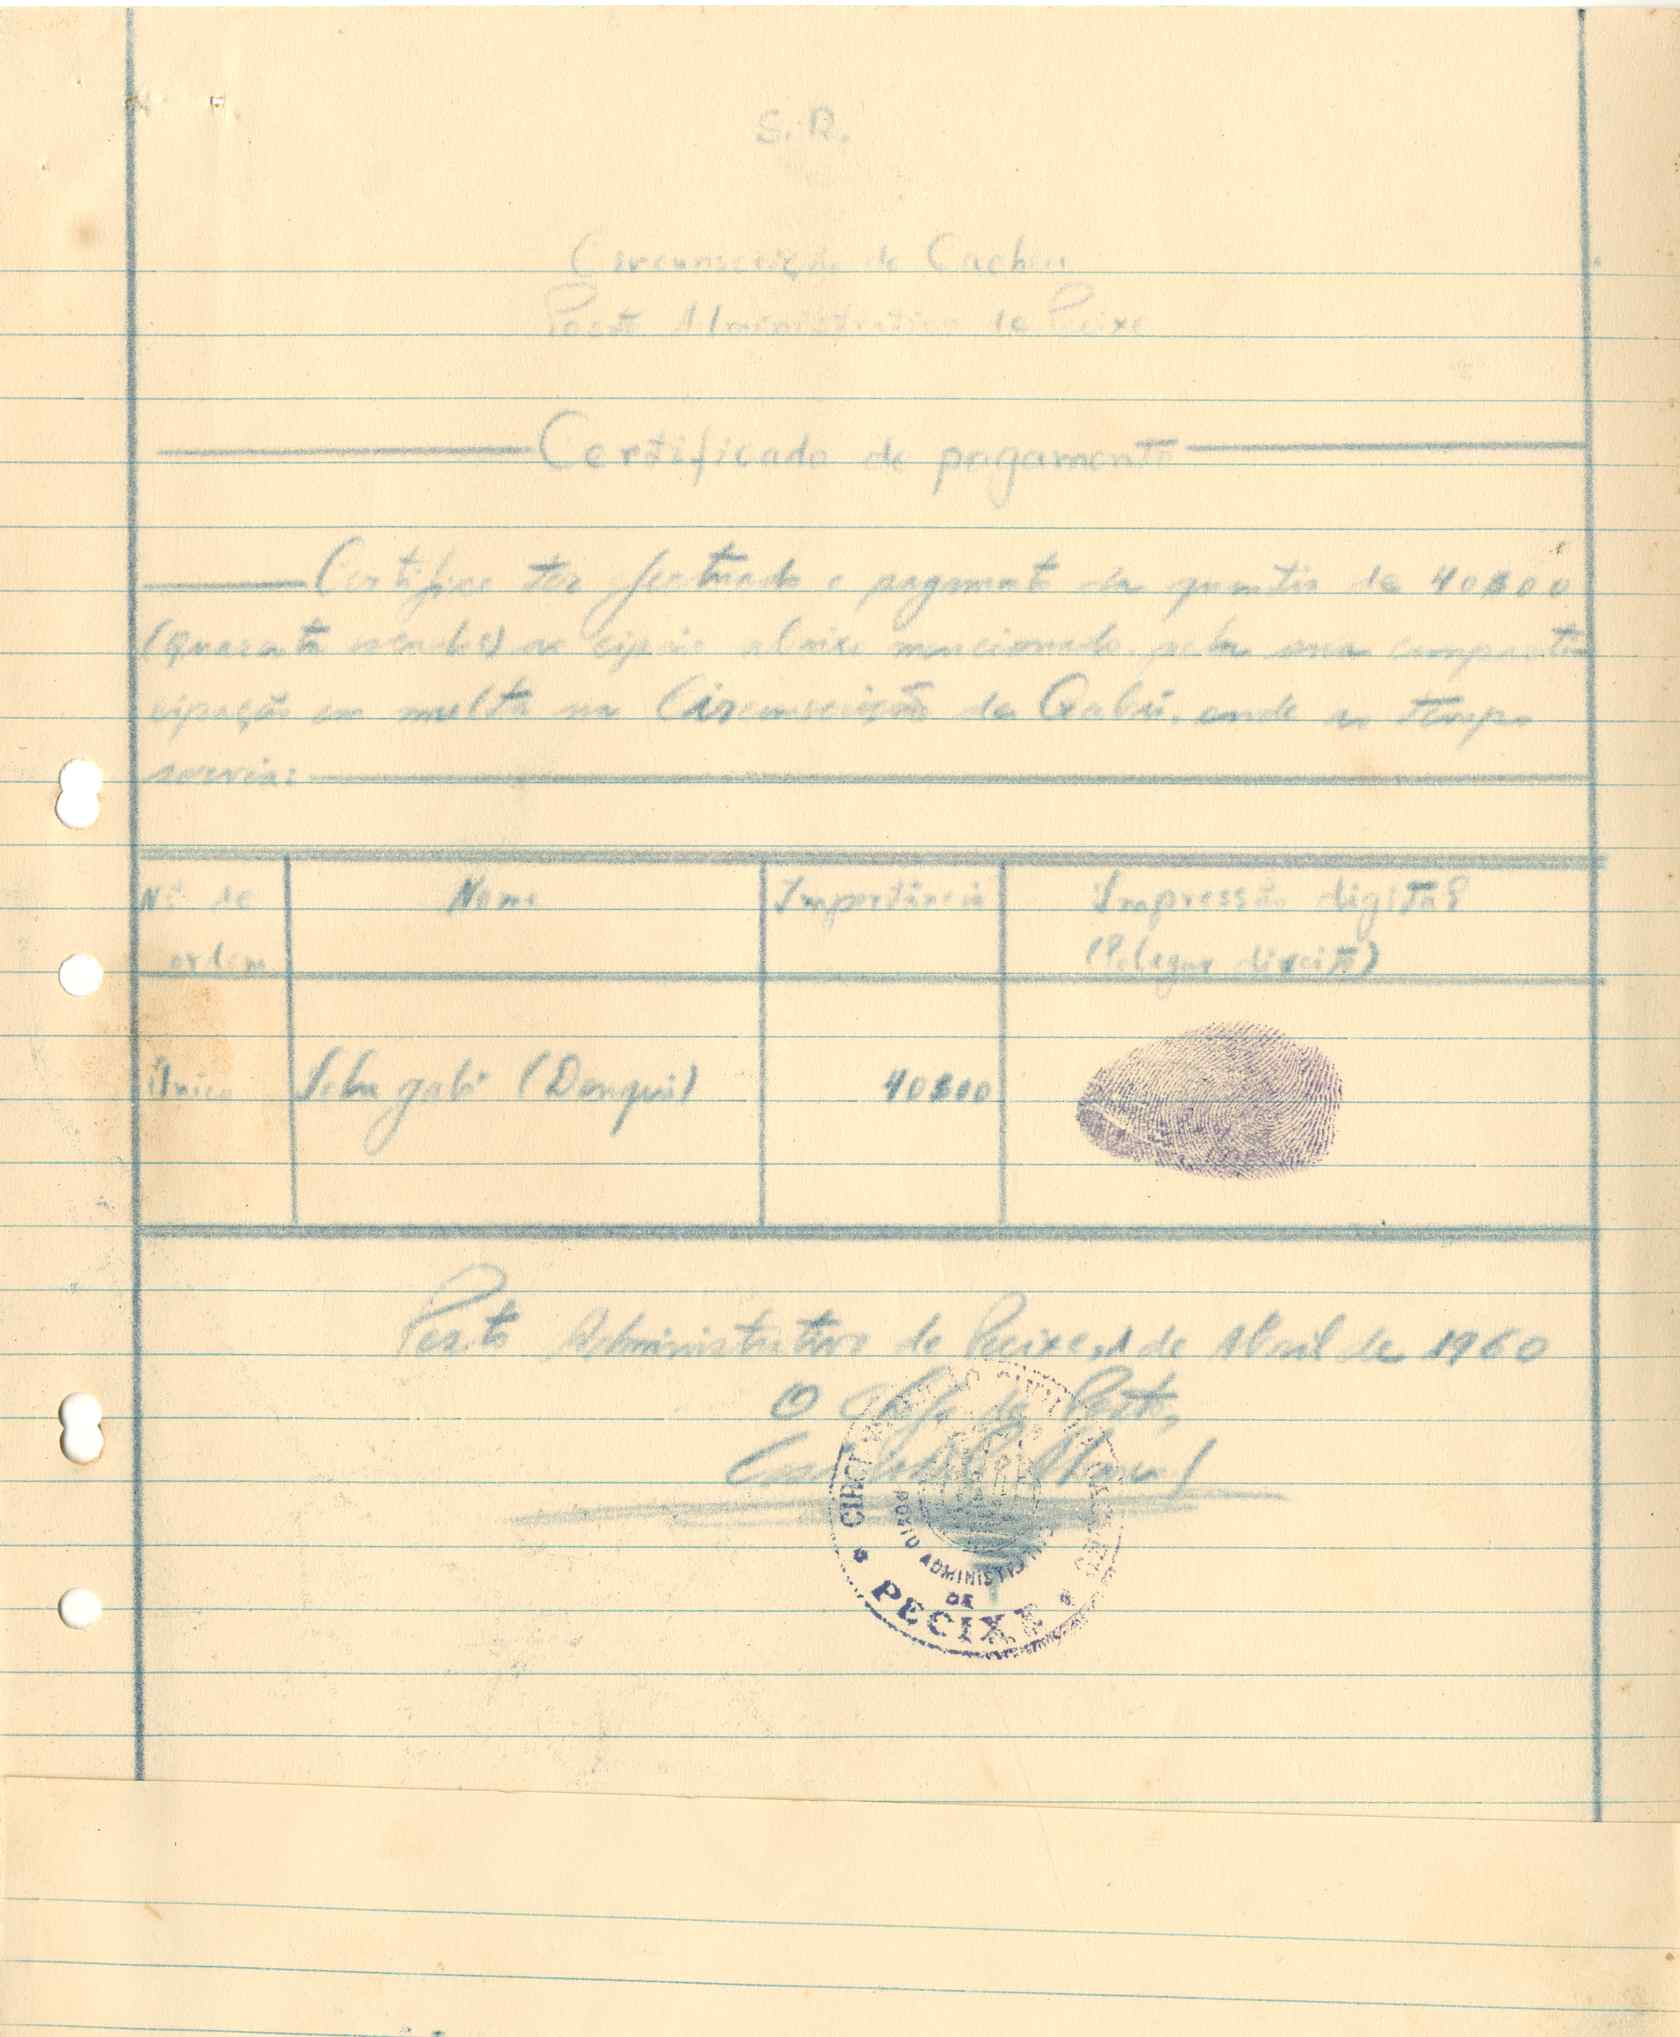 S. R.
Circunscrição de Cacheu
Posto Administrativo de Pecixe
Certificado de pagamento
Certifico ter efectuado o pagamento da quantia de 40$00
(Quarenta escudos) ao cipaio abaixo mencionado, pela sua compartи
cipação em multa na Circunscrição de Gabú, onde ao tempo
servia:
Nº de Nome Importância Impressão digital
ordem (Polegar direito)
Único gabi 40$00
Posto Administrativo de Pecixe, 1 de Abril de 1960
O Chefe de Posto,
POSTO ADMINISTRATIVO
DE
PECIXE